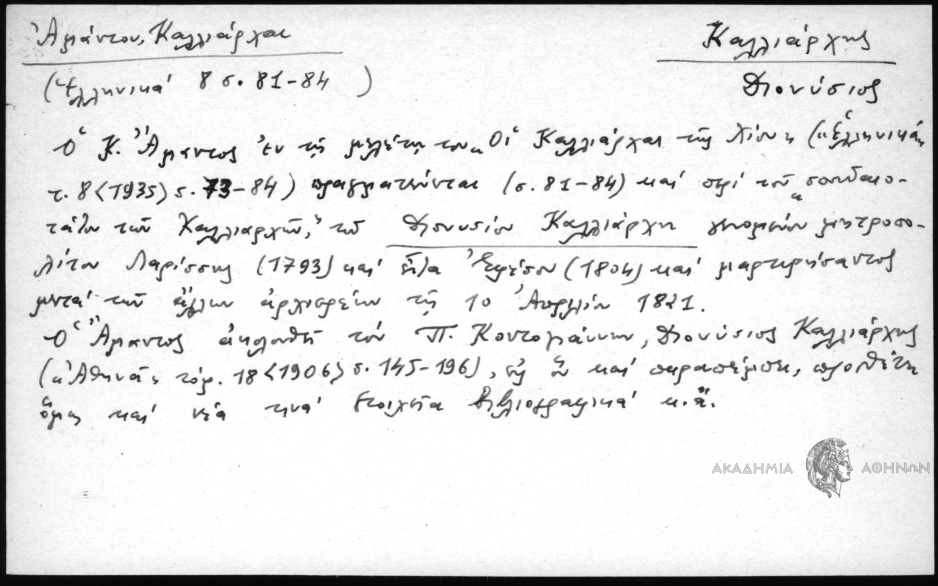 Ἀμάντου, Καλλιάρχαι
Καλλιάρχης
(Ἑλληνικά 8 σ. 81-84 )
Διονύσιος
Ὁ Κ. Ἄμαντος ἐν τῇ μελέτῃ του „Οἱ Καλλιάρχαι τῆς Χίου„ («Ἑλληνικά»
τ. 8<1935) σ. 73-84) πραγματεύεται (σ. 81-84) καί περί τοῦ „σπουδαιο-
τάτου τῶν Καλλιαρχῶν,” τοῦ Διονυσίου Καλλιάρχη γενομένου μητροπο-
λίτου Λαρίσσης (1793) καί εἶτα Ἐφέσου (1804) καί μαρτυρήσαντος
μετά τῶν ἄλλων ἀρχιερέων τῇ 10 Ἀπριλίου 1821.
Ὁ Ἄμαντος ἀκολουθεῖ τόν Π. Κοντογιάννην, Διονύσιος Καλλιάρχης
(«Ἀθηνᾶ» τόμ. 18<1906> σ. 145-196), εἰς ὅν καί παραπέμπει, προσθέτει
ὅμως καί νέα τινά στοιχεῖα βιβλιογραφικά κ.ἄ.
ΑΚΑΔΗΜΙΑ ΑΘΗΝΩΝ